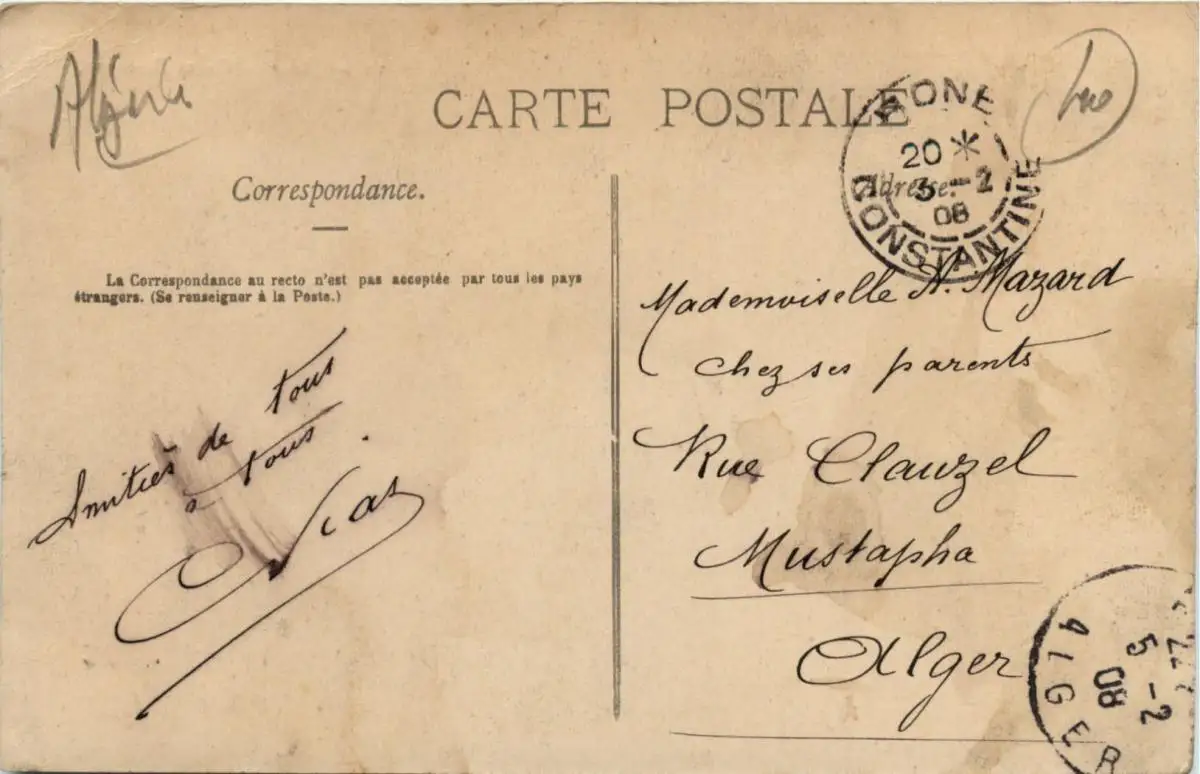 Algérie
CARTE POSTALE
BONE
20 *
3 -2
08
CONSTANTINE
Correspondance.
Adresse.
La Correspondance au recto n'est pas acceptée par tous les pays
étrangers. (Se renseigner à la Poste.)
Amitiés de tous
à tous
Mademoiselle A. Mazard
chez ses parents
Rue Clauzel
Mustapha
Alger
5 -2
08
ALGER